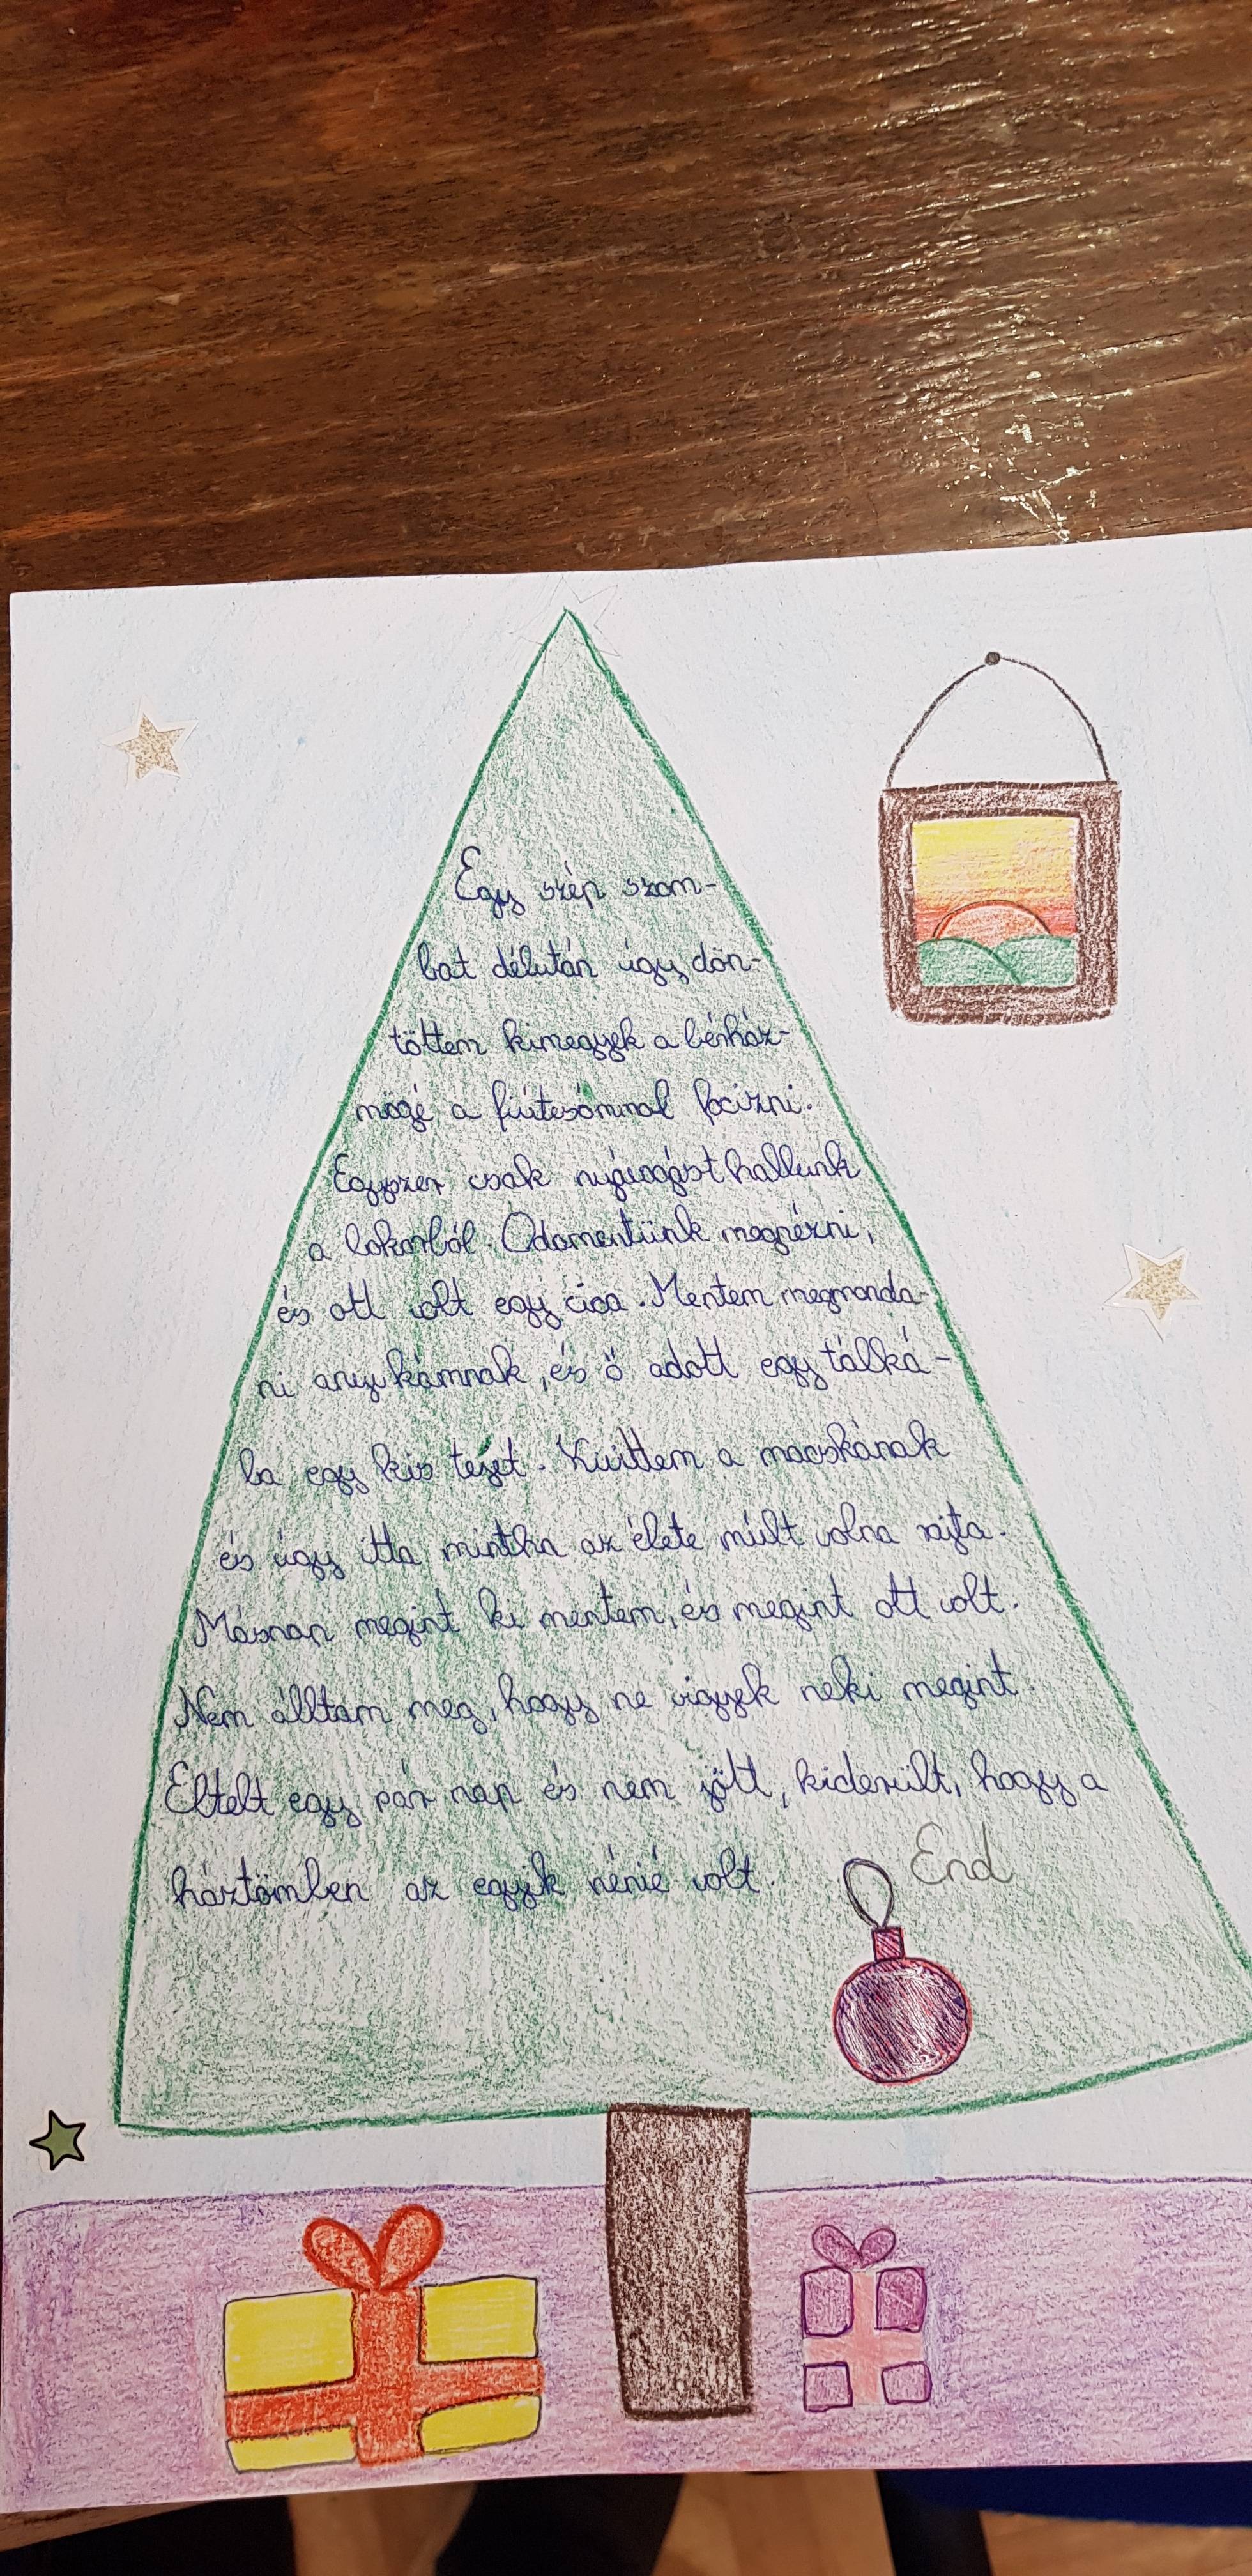 Egy szép szom-
bat délután úgy dön-
töttem kimegyek a bérház-
mögé a fiútesómmal focizni.
Egyszer csak nyávogást hallunk
a bokorból. Odamentünk megnézni,
és ott volt egy cica. Mentem megmonda-
ni anyukámnak, és ő adott egy tálká-
ba egy kis tejet. Kivittem a macskának
és úgy itta mintha az élete múlt volna rajta.
Másnap megint ki mentem, és megint ott volt.
Nem álltam meg, hogy ne vigyek neki megint.
Eltelt egy pár nap és nem jött, kiderült, hogy a
háztömben az egyik nénié volt.
End